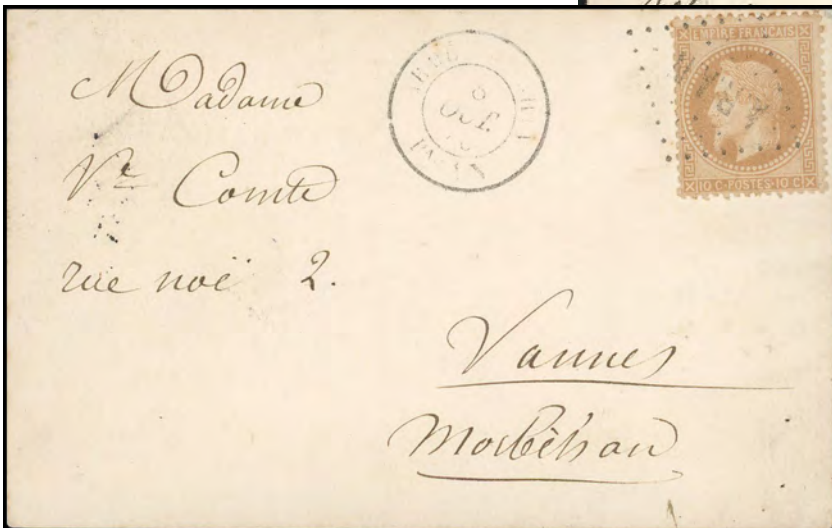 Madame
Vᵉ Comte
rue noë 2.
Vannes
Morbihan
EMPIRE FRANCAIS
10 C·POSTES·10 C
OCT.